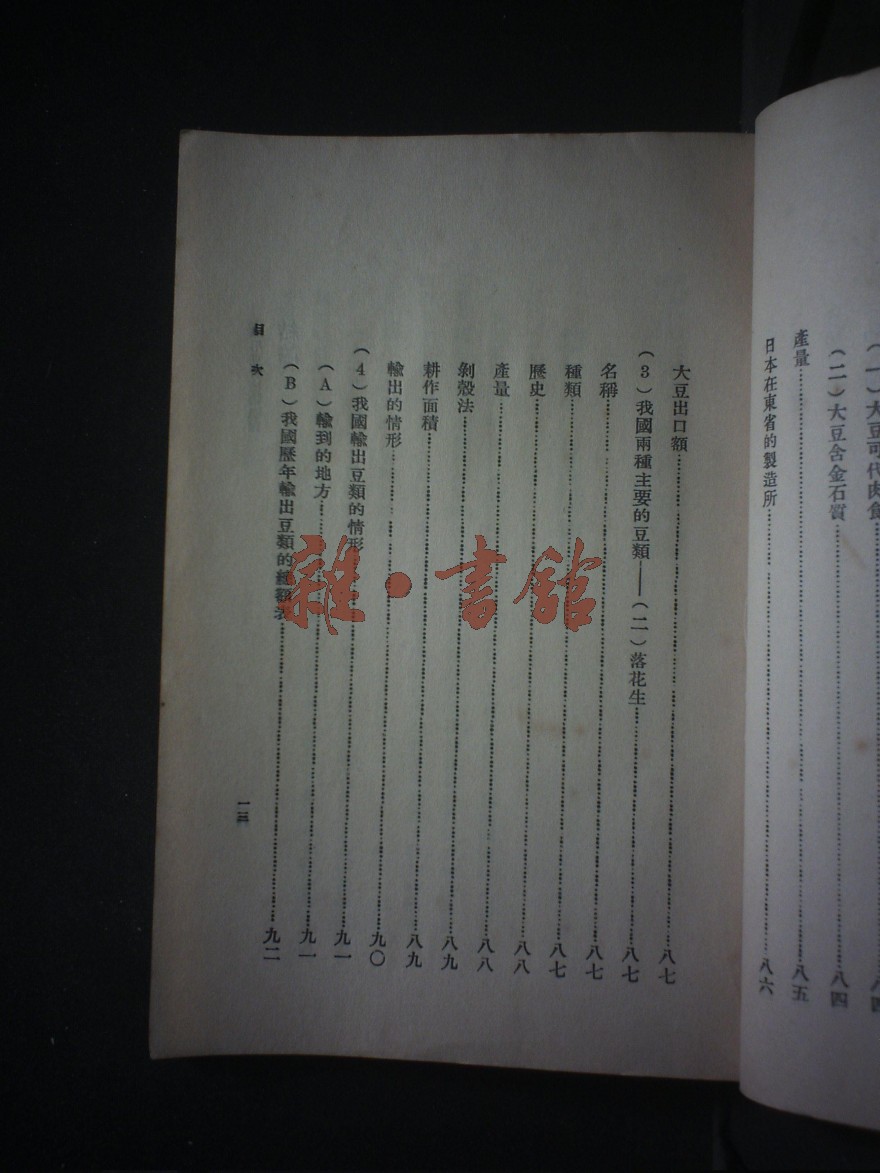 (一)大豆可代肉食……八四
(二)大豆含金石質……八四
產量……八五
日本在東省的製造所……八六
大豆出口額……八七
(3)我國兩種主要的豆類——(二)落花生……八七
名稱……八七
種類……八七
歷史……八八
產量……八八
剝殼法……八九
耕作面積……八九
輸出的情形……九〇
(4)我國輸出豆類的情形……九一
(A)輸到的地方……九一
(B)我國歷年輸出豆類的總額表……九二
目次
一三
雜·書館